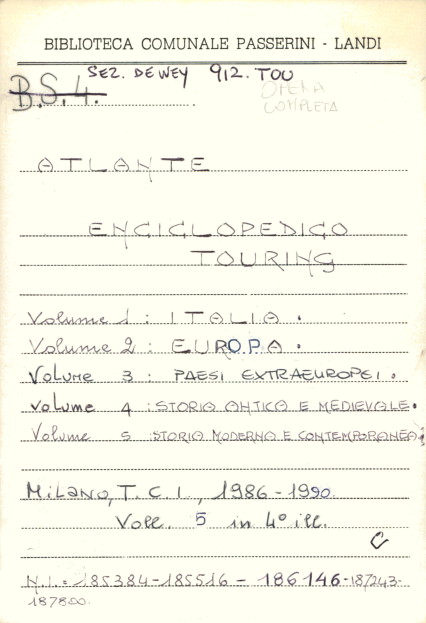 BIBLIOTECA COMUNALE PASSERINI - LANDI
SEZ. DEWEY 912. TOU
B.S.4.
OPERA
COMPLETA
ATLANTE
ENCICLOPEDICO
TOURING
Volume 1 : ITALIA .
Volume 2 : EUROPA .
Volume 3 : PAESI EXTRAEUROPEI .
Volume 4 : STORIA ANTICA E MEDIEVALE.
Volume 5 : STORIA MODERNA E CONTEMPORANEA.
Milano, T.C.I., 1986-1990.
Voll. 5 in 4° ill.
C
N.I.: 185384-185516-186146-187243-
187800.